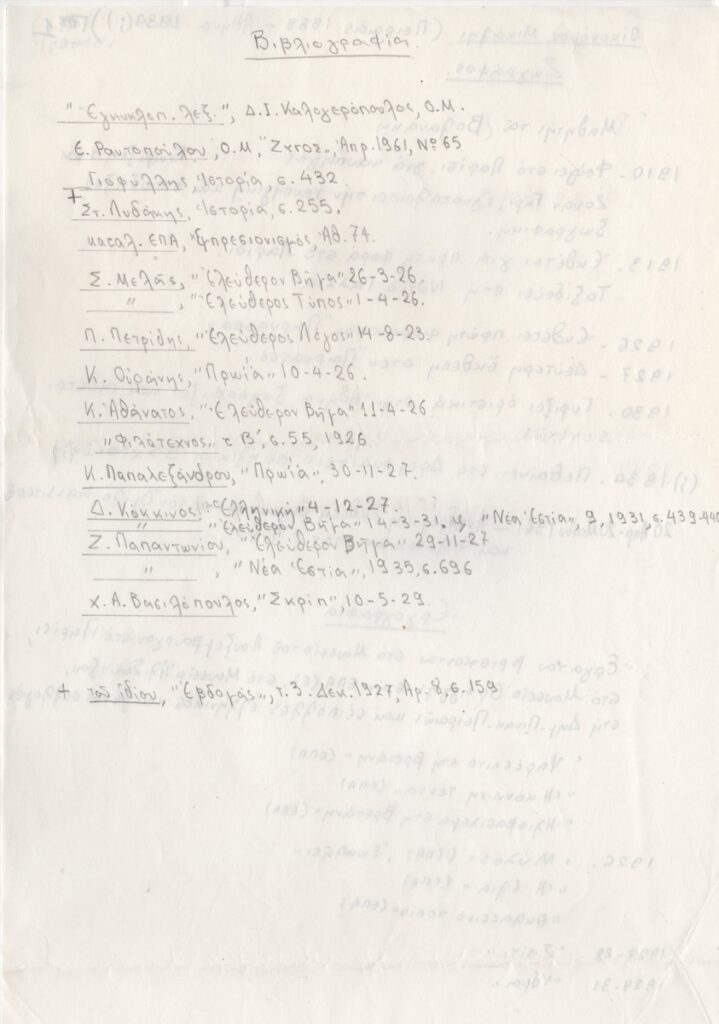 Βιβλιογραφία.
"Ἐγκυκλοπ. λεξ.", Δ.Ι. Καλογερόπουλος, Ο.Μ.
Ε. Ραυτοπούλου, Ο.Μ, "Ζυγός", Ἀπρ. 1961, Νο 65
Γιοφύλλης, Ἱστορία, σ. 432
+ Στ. Λυδάκης, Ἱστορία, σ. 255,
καταλ. ΕΠΑ, Ἐμπρεσιονισμός, Ἀθ. 74.
Σ. Μελᾶς, "Ἐλεύθερον Βῆμα" 26-3-26.
" , "Ἐλεύθερος Τύπος" 1-4-26.
Π. Πετρίδης, "Ἐλεύθερος Λόγος" 14-8-23
Κ. Οὐράνης, "Πρωΐα" 10-4-26.
Κ. Ἀθάνατος, "Ἐλεύθερον Βῆμα" 11-4-26
"Φιλότεχνος" τ Β', σ. 55, 1926
Κ. Παπαλεξάνδρου, "Πρωΐα", 30-11-27.
Δ. Κόκκινος, "Ἑλληνική" 4-12-27.
" "Ἐλεύθερον Βῆμα" 14-3-31. "Νέα Ἑστία", 9, 1931, σ. 439-440
Ζ. Παπαντωνίου, "Ἐλεύθερον Βῆμα" 29-11-27
" , "Νέα Ἑστία", 1935, σ. 696
Χ. Α. Βασιλόπουλος, "Σκρίπ", 10-5-29.
+ τοῦ ἰδίου, "Ἑβδομάς", τ. 3. Δεκ. 1927, Ἀρ. 8, σ. 159